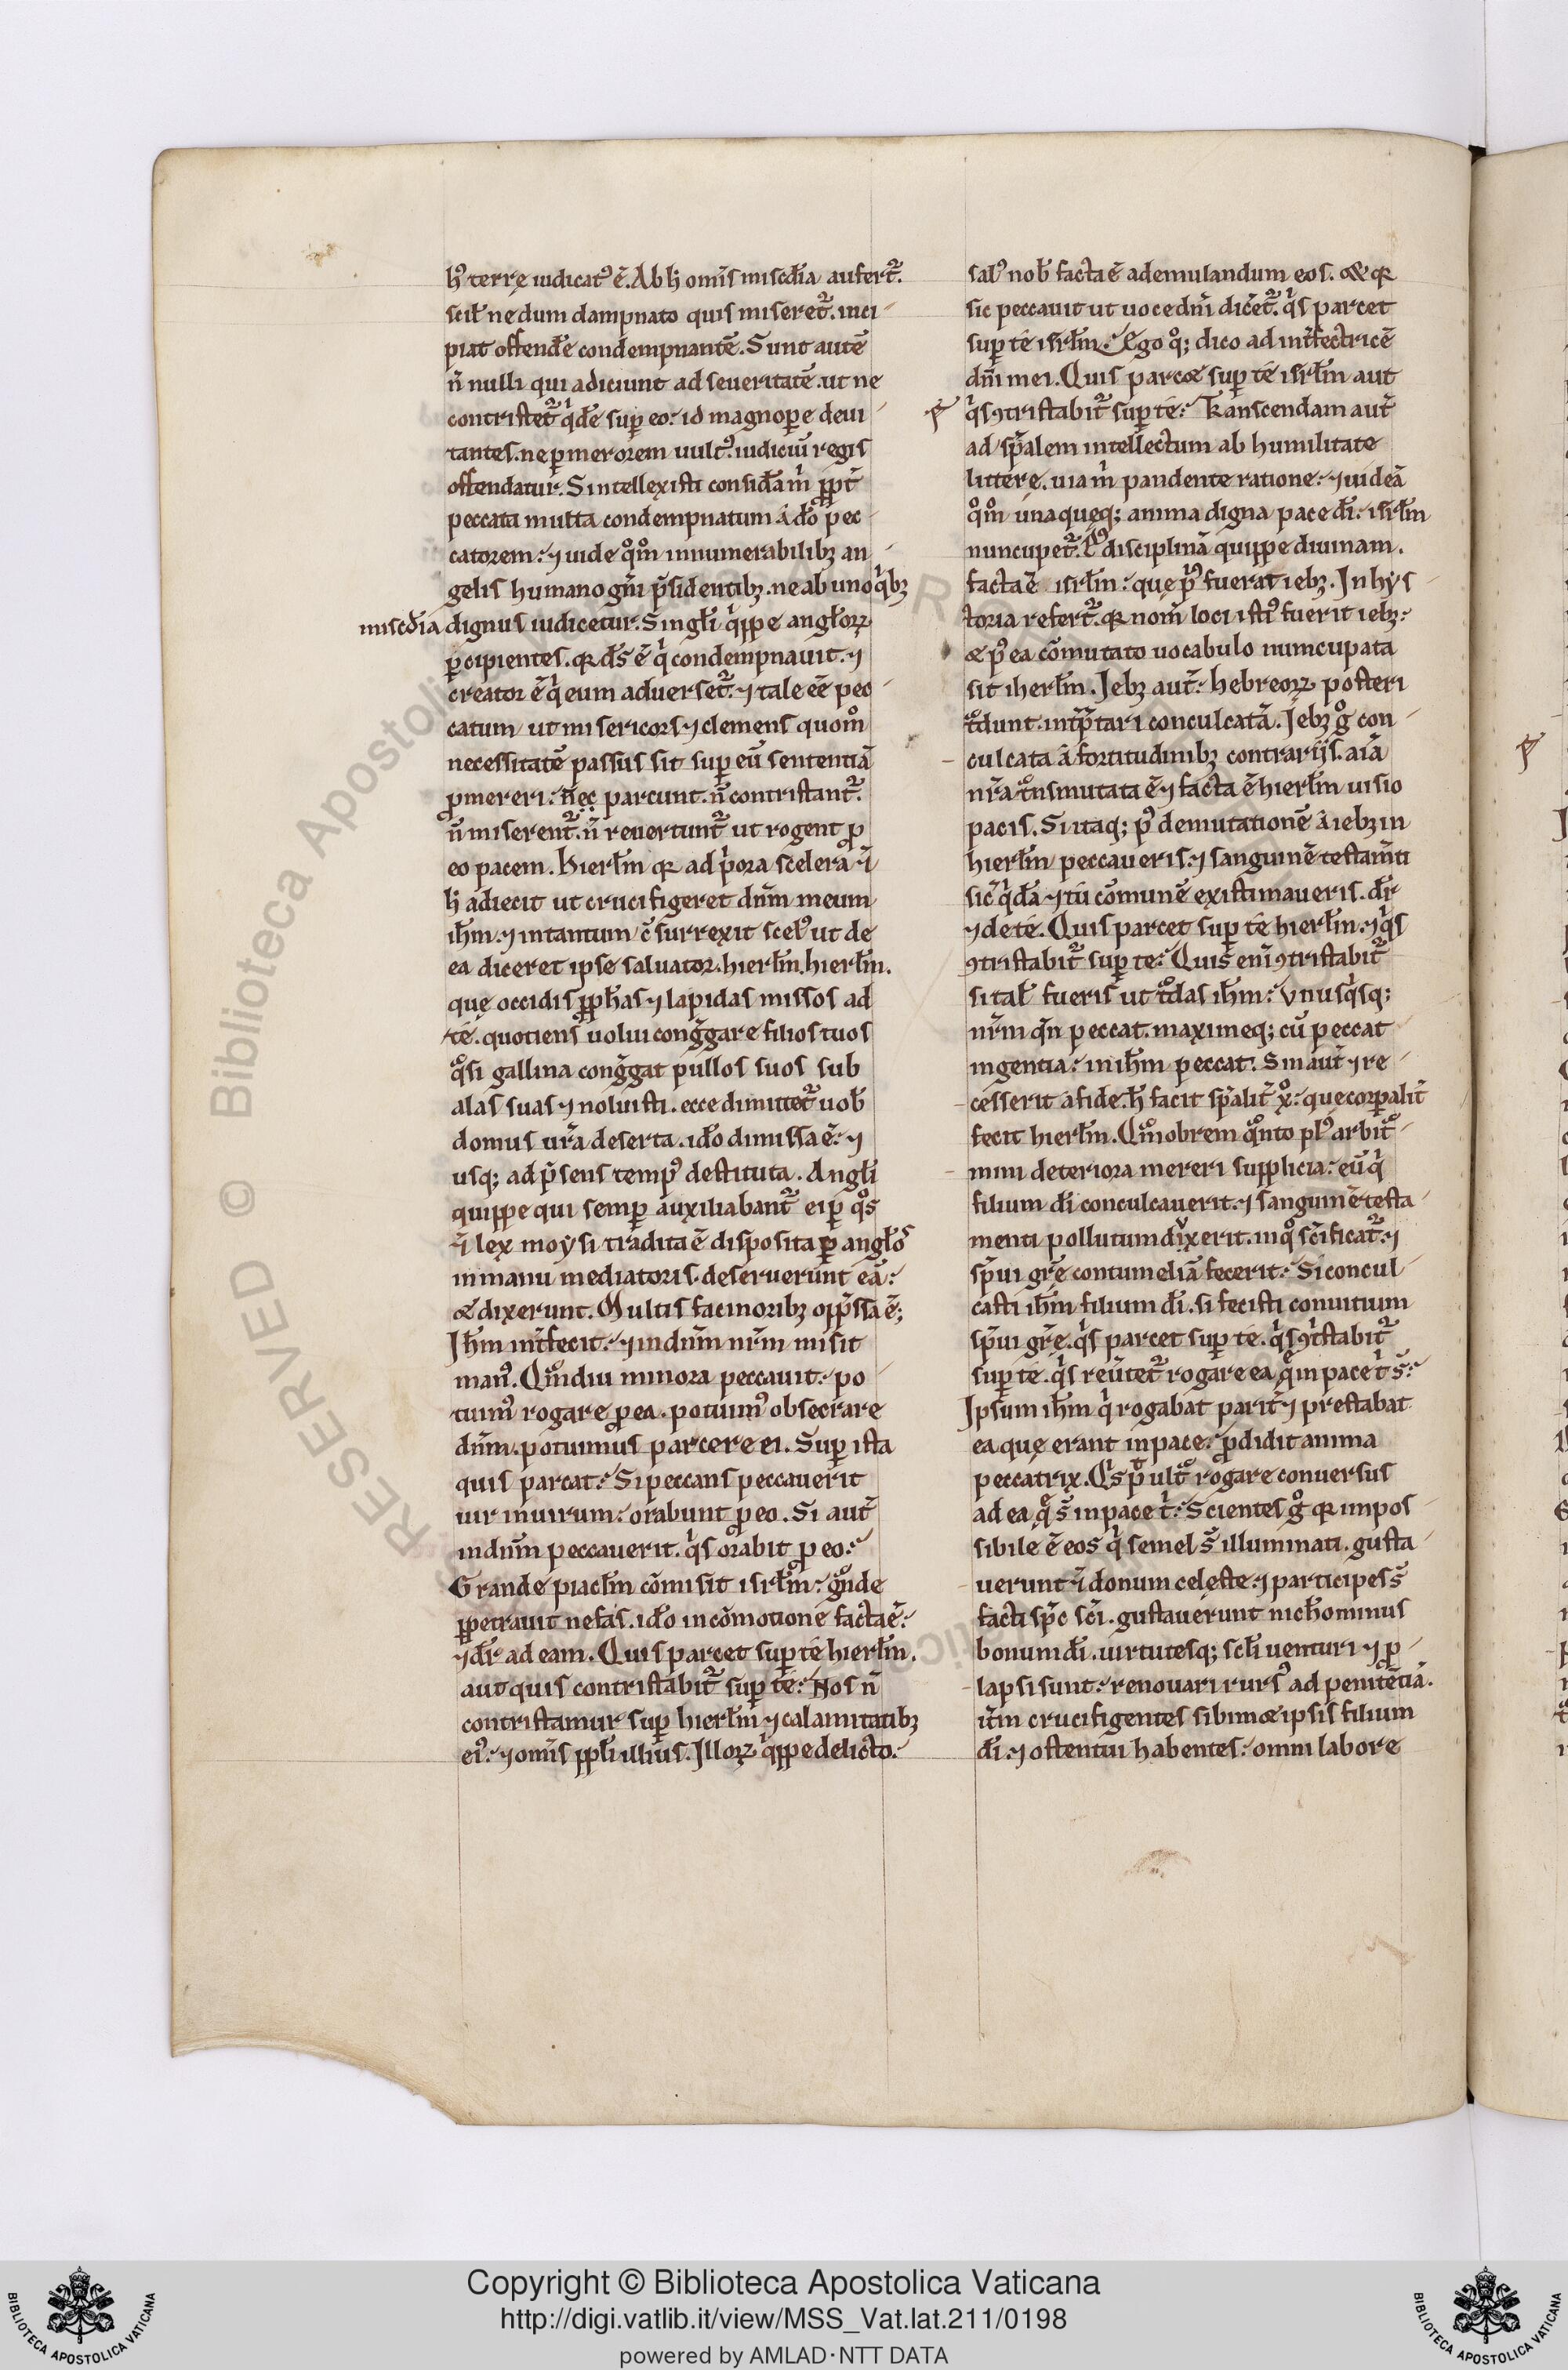 hꝰ terrę iudicatꝰ ē. Ab h̵ omīs miscđia auferť.
scił ne dum dampnato quis misereť. inci
piat offendēe condempnantē. Sunt autē
n̄ nulli qui adiciunt ad seueritatē. ut ne
contristeť qͥdē suꝑ eo: id magnoꝑe deui
tantes. ne ꝑ merorem uultꝰ. iudiciū regis
offendatur. Si intellexisti considām̄ ꝓpť
peccata multa condempnatum a dō pec
catorem: ⁊ uide qͦmͦ innumerabilibꝫ an
gelis humano gn̄i p̄sidentibꝫ. ne ab uno qͥbꝫ
miscđia dignus iudicetur. Singłi qͥppe angłoꝝ
ꝑcipientes. qꝛ dš ē qͥ condempnauit. ⁊
creator ē qͥ eum aduerseť. ⁊ tale eē pec
catum ut misericors ⁊ clemens quomͦ
necessitatē passus sit suꝑ eū sententiā
ꝓmereri: nec parcunt. n̄ contristanť.
n̄ miserenť. n̄ reuertunť ut rogent ꝓ
eo pacem. Hierłm qꝛ ad pͥora scelera ⁊
h̵ adiecit ut crucifigeret dn̄m meum
ih̄m. ⁊ intantum c̄surrexit scelꝰ ut de
ea diceret ipse saluator. hierłm. hierłm.
quę occidis ꝓph̄as ⁊ lapidas missos ad
te. quotiens uolui congͣgare filios tuos
qͣsi gallina congͣgat pullos suos sub
alas suas ⁊ noluisti. ecce dimitteť uob̄
domus ur̄a deserta. idō dimissa ē: ⁊
usqꝫ ad p̄sens tempꝰ destituta. Angłi
quippe qui semꝑ auxiliabanť ei ꝑ qͦs
⁊ lex moysi tradita ē disposita ꝑ angłoſ
in manu mediatoris. deseruerunt eā:
& dixerunt. Multis facinoribꝫ opp̄ssa ē;
Ih̄m int̄fecit: ⁊ in dn̄m nr̄m misit
manꝰ. Qͣmdiu minora peccauit: po
tuimꝰ rogare ꝓ ea. potuimꝰ obsecrare
dn̄m. potuimus parcere ei. Suꝑ ista
quis parcat: Si peccans peccauerit
uir in uirum: orabunt ꝓ eo. Si aut̄
in dn̄m peccauerit. qͥs orabit ꝓ eo:
Grande piacłm cōmisit isrłm: gͣnde
ꝑpetrauit nefas. idō in cōmotionē facta ē:
⁊ dr̄ ad eam. Quis parcet suꝑ te hierłm.
aut quis contristabiť suꝑ te: Nos n̄
contristamur suꝑ hierłm ⁊ calamitatibꝫ
eiꝰ: ⁊ omīs ppłi illius. Illoꝝ qͥppe delicto:
salꝰ nob̄ facta ē ad emulandum eos. & qꝛ
sic peccauit ut uoce dn̄i diceť. qͥs parcet
suꝑ te isrłm: Ego qͦꝫ dico ad int̄fectricē
dn̄i mei. Quis parc& suꝑ te isrłm aut
qͥs ꝯtristabiť suꝑ te: Transcendam aut̄
ad sp̄alem intellectum ab humilitate
litterę. uiam̄ pandente ratione: ⁊ uideā
qͦmͦ unaquęqꝫ anima digna pace dī: isrłm
nuncupeť. Pꝰ disciplinā quippe diuinam.
facta ē isrłm: quę pͥꝰ fuerat iebꝫ. In hys
toria referť. qꝛ nom̄ loci istiꝰ fuerit iebꝫ:
& pꝰea cōmutato uocabulo nuncupata
sit iherłm. Iebꝫ aut̄: hebreoꝝ posteri
tͣdunt. intp̄tari conculcatā. Iebꝫ gͦ con
culcata a fortitudinibꝫ contrariis. aīa
nr̄a tͣnsmutata ē ⁊ facta ē hierłm uisio
pacis. Si itaqꝫ pꝰ demutationē a iebꝫ in
hierłm peccaueris. ⁊ sanguinē testam̄ti
sic qͥdā ⁊ tu cōmunē existimaueris. dr̄
⁊ de te. Quis parcet suꝑ te hierłm. ⁊ qͥs
ꝯtristabiť suꝑ te: Quis enī ꝯtristabiť
si tał fueris ut tͣdas ih̄m: Vnusqͥsqꝫ
nr̄m qn̄ peccat. maximeqꝫ cū peccat
ingentia: in ih̄m peccat. Sin aut̄ ⁊ re
cesserit a fide. h̵ facit sp̄alit̄ xͦ: que corꝑalit̄
fecit hierłm. Qͣmobrem qͣnto plꝰ arbitͣ
mini deteriora mereri supplicia: eū qͥ
filium dī conculcauerit. ⁊ sanguinē testa
menti pollutum dixerit. in qͦ sc̄ificať. ⁊
sp̄ui gr̄e contumeliā fecerit: Si concul
casti ih̄m filium dī. si fecisti conuitium
sp̄ui gr̄ę. qͥs parcet suꝑ te. qͥs ꝯtͥstabiť
suꝑ te. qͥs reūteť rogare ea qͣ in pace t̄ s̄:
Ipsum ih̄m qͥ rogabat parit̄ ⁊ prestabat
ea quę erant in pace: ꝓdidit anima
peccatrix. Qͥs p̄ ultͣ rogare conuersus
ad ea qͣ s̄ in pace t̄: Scientes gͦ qꝛ impos
sibile ē eos qͥ semel s̄ illuminati. gusta
uerunt ⁊ donum celeste. ⁊ participes s̄
facti sp̄c sc̄i. gustauerunt nich̄ominus
bonum dī. uirtutesqꝫ scłi uenturi ⁊ ꝓ
lapsi sunt: renouari rursꝰ ad penitētiā.
it̄m crucifigentes sibim& ipsis filium
dī: ⁊ ostentui habentes: omni labore
Copyright © Biblioteca Apostolica Vaticana
http://digi.vatlib.it/view/MSS_Vat.lat.211/0198
powered by AMLAD·NTT DATA